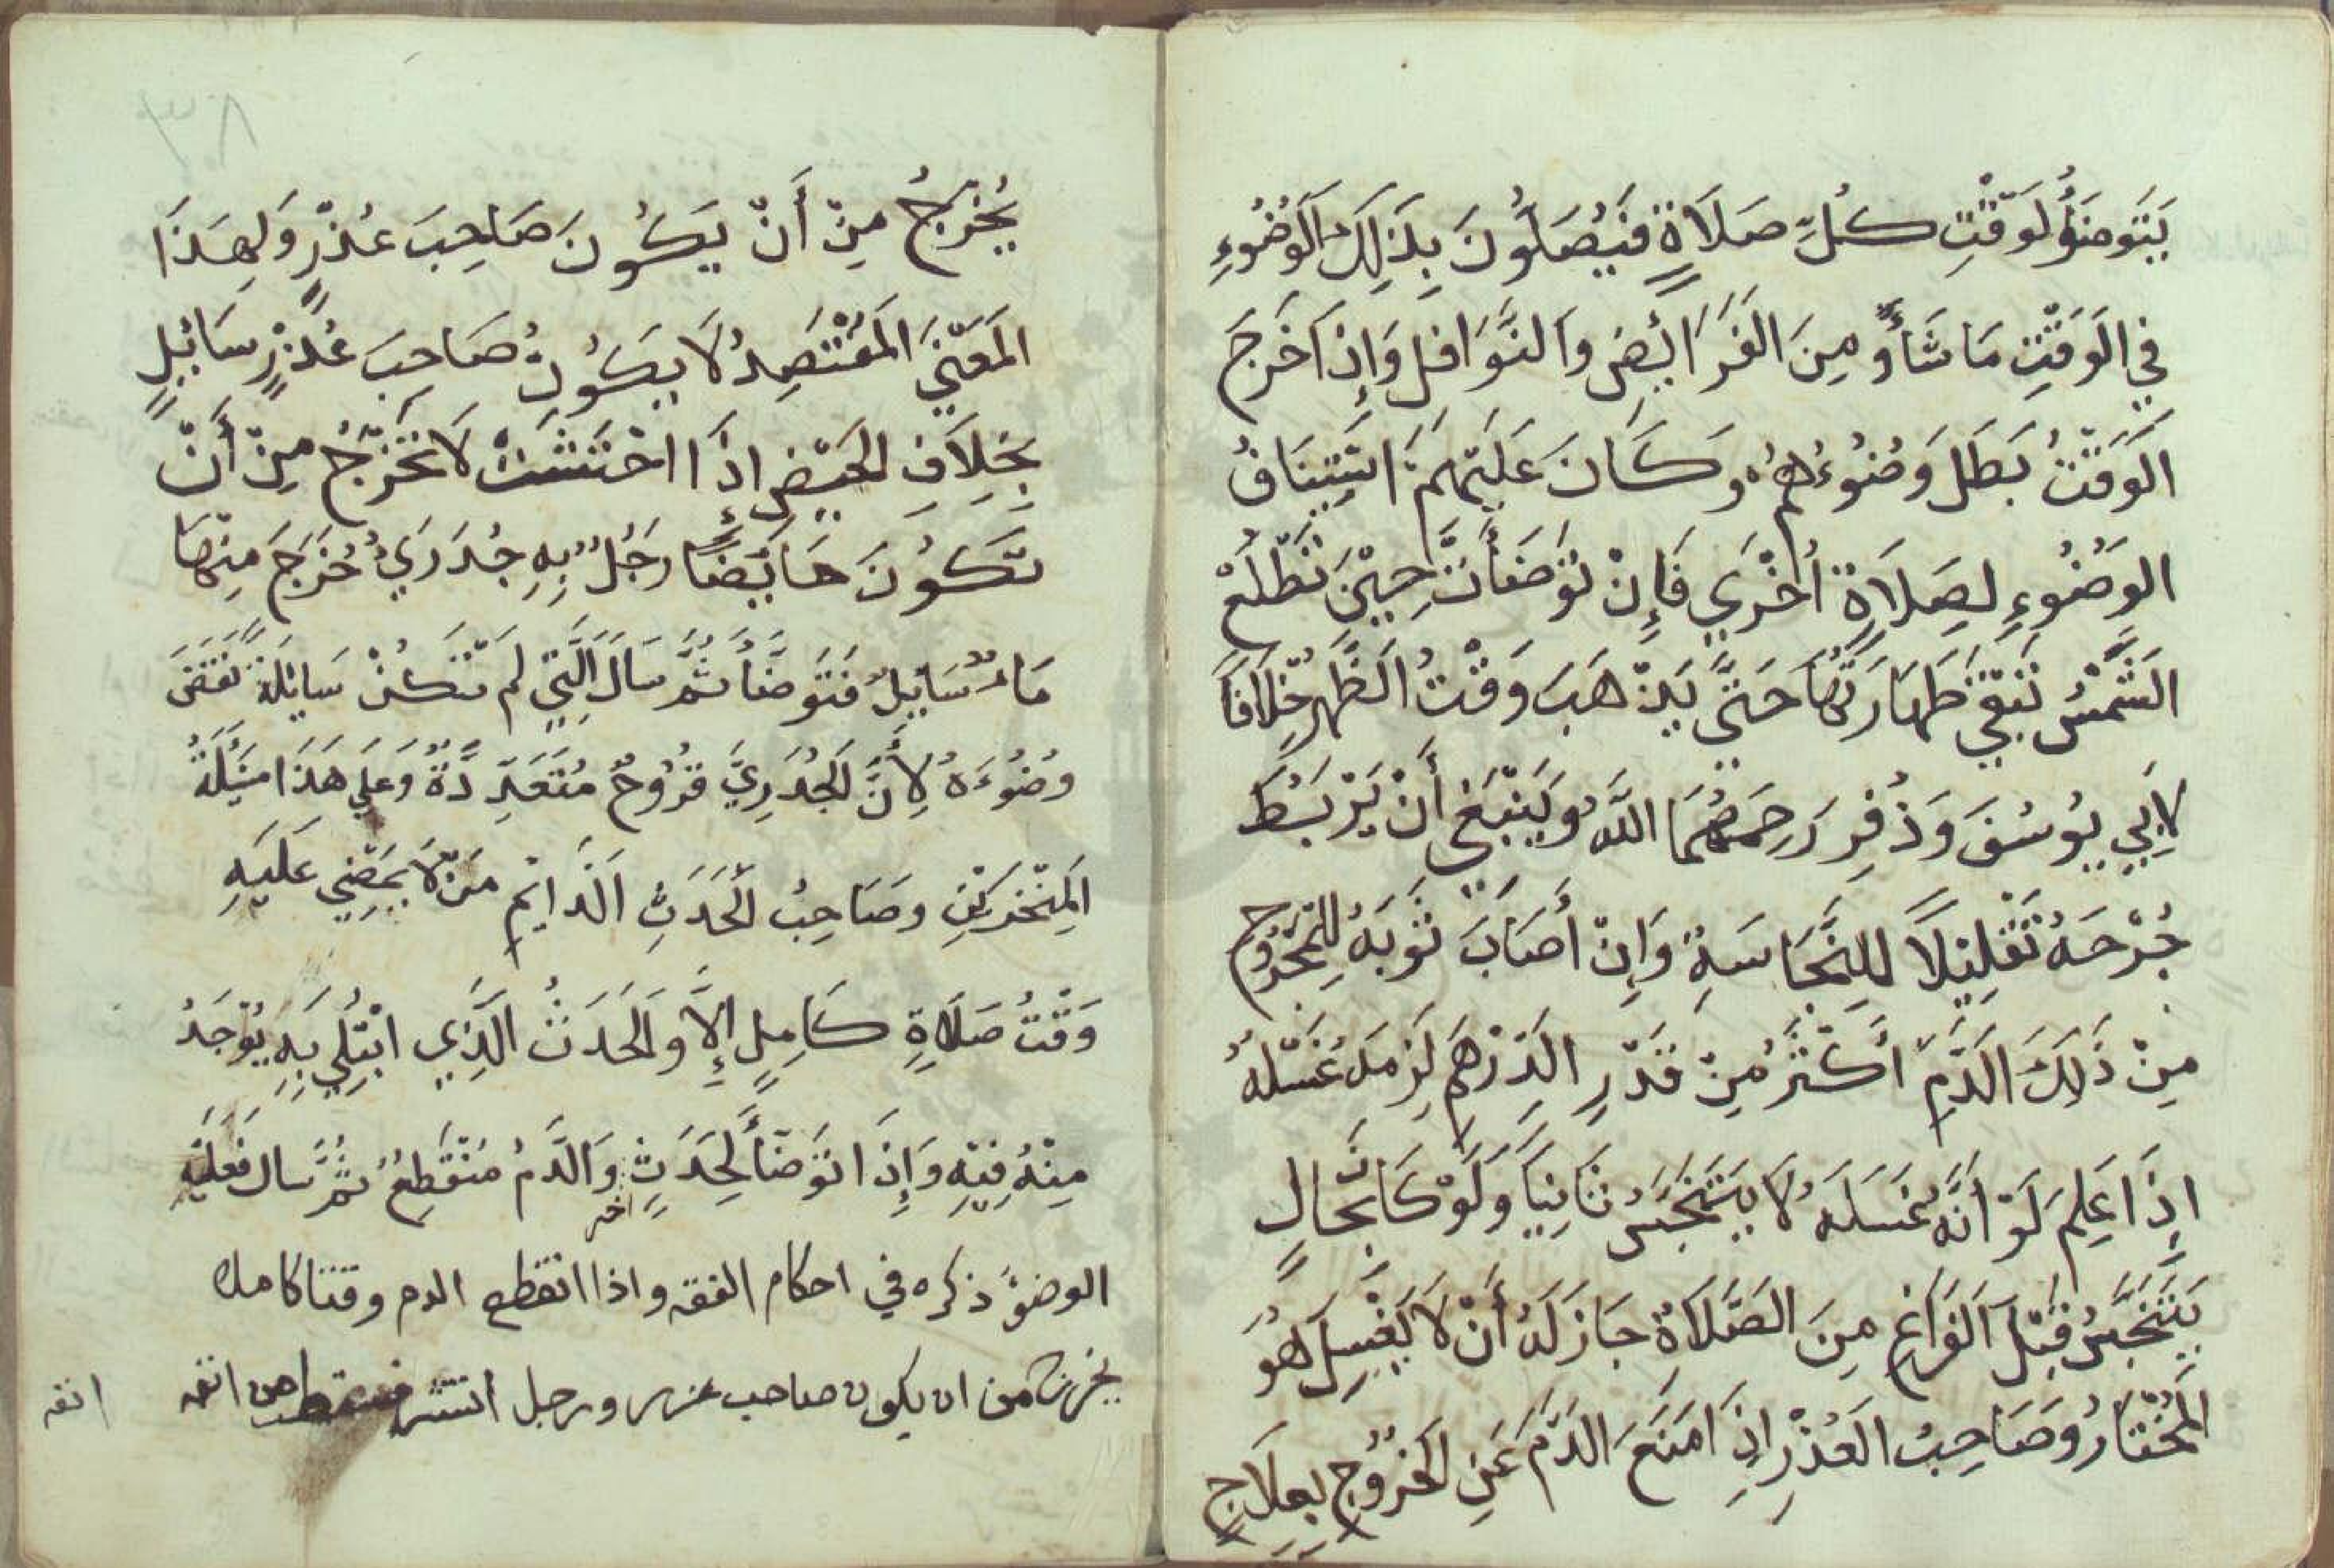 يَتَوَضَّؤُ لِوَقْتِ كُلِّ صَلَاةٍ فَيُصَلُّونَ بِذَلِكَ الْوُضُوءِ
فِي الْوَقْتِ مَا شَاءُ وْ مِنَ الْفَرَائِضِ وَالنَّوَافِلِ وَإِذَا خَرَجَ
الْوَقْتُ بَطَلَ وُضُوءُهُمْ وَكَانَ عَلَيْهِمْ اسْتِيْنَافُ
الْوُضُوءِ لِصَلَاةٍ أُخْرَي فَإِنْ تَوَضَّأَتْ حِيْنَ تَطْلُعْ
الشَّمْسُ تَبْقَي طَهَارَتُهَا حَتَّي يَذْهَبَ وَقْتُ الظُّهْرِ خِلَافًا
لِأَبِي يُوسُفَ وَذُفِرِ رَحِمَهُمَا اللَّهُ وَيَنْبَغِي أَنْ يَرْبَُطَ
جُرْحَهُ تَقْلِيْلًا لِلنَّجَاسَةِ وَإِنْ أَصَابَ ثَوْبَهُ لِلْخُرُوجِ
مِنْ ذَلِكَ الدَّمِ أَكْثَرُ مِنْ قَدْرِ الدِّرْهَمِ لَزِمَهُ غَسْلُهُ
اِذَا عَلِمَ لَوْ أَنَّهُ غَسَلَهُ لَا يَتَنَجَّسُ ثَانِيًا وَلَوْ كَانَ بِحَالٍ
يَتَنَجَّسُ قَبْلَ الْفَرَاغِ مِنَ الصَّلَاةِ جَازَ لَهُ أَنْ لَا يَغْسِلَ هُوَ
الْمُخْتَارُ وَصَاحِبُ الْعُذْرِ اِذَا مَنَعَ الدَّمَ عَنِ الْخُرُوجِ بِعِلَاجٍ
يُخْرِجُ مِنْ أَنْ يَكُونَ صَاحِبَ عُذْرٍ وَلِهَذَا
الْمَعْنَي الْمُفْتَصِدُ لَا يَكُونُ صَاحِبَ عُذْرٍ سَائِلٍ
بِخِلَافِ الْحَيْضِ اِذَا احْتَشَتْ لَا تَخْرُجُ مِنْ أَنْ
تَكُونَ حَايِضًا رَجُلٌ بِهِ جُدَرِيٌ خُرَجَ مِنْهَا
مَاءٌ سَايِلٌ فَتَوَضَّأَ ثُمَّ سَالَ الَّتِي لَمْ تَكُنْ سَائِلَةً نَقَضَ
وُضُوءَهُ لِأَنَّ الْجُدَرِيَّ قُرُوحٌ مُتَعَدِّدَةٌ وَعَلَي هَذَا مَسْئَلَةُ
الْمِنْخَرَيْنِ وَصَاحِبُ الْحَدَثِ الدَّايِمِ مَنْ لَا يَمْضِي عَلَيْهِ
وَقْتُ صَلَاةٍ كَامِلٍ إِلَّا وَالْحَدَثُ الَّذِي ابْتُلِي بِهِ يُوْجَدُ
مِنْهُ فِيْهِ وَإِذَا تَوَضَّأَ لِحَدَثٍ اخر وَالدَّمُ مُنْقَطِعٌ ثُمَّ سَالَ فَعَلَيْهِ
الوضوُ ذكره في احكام الفقه واذا انقطع الدم وقتا كاملا
يخرج من ان يكون صاحب عذر ورجل انتشر فسقط من انفه
انفه